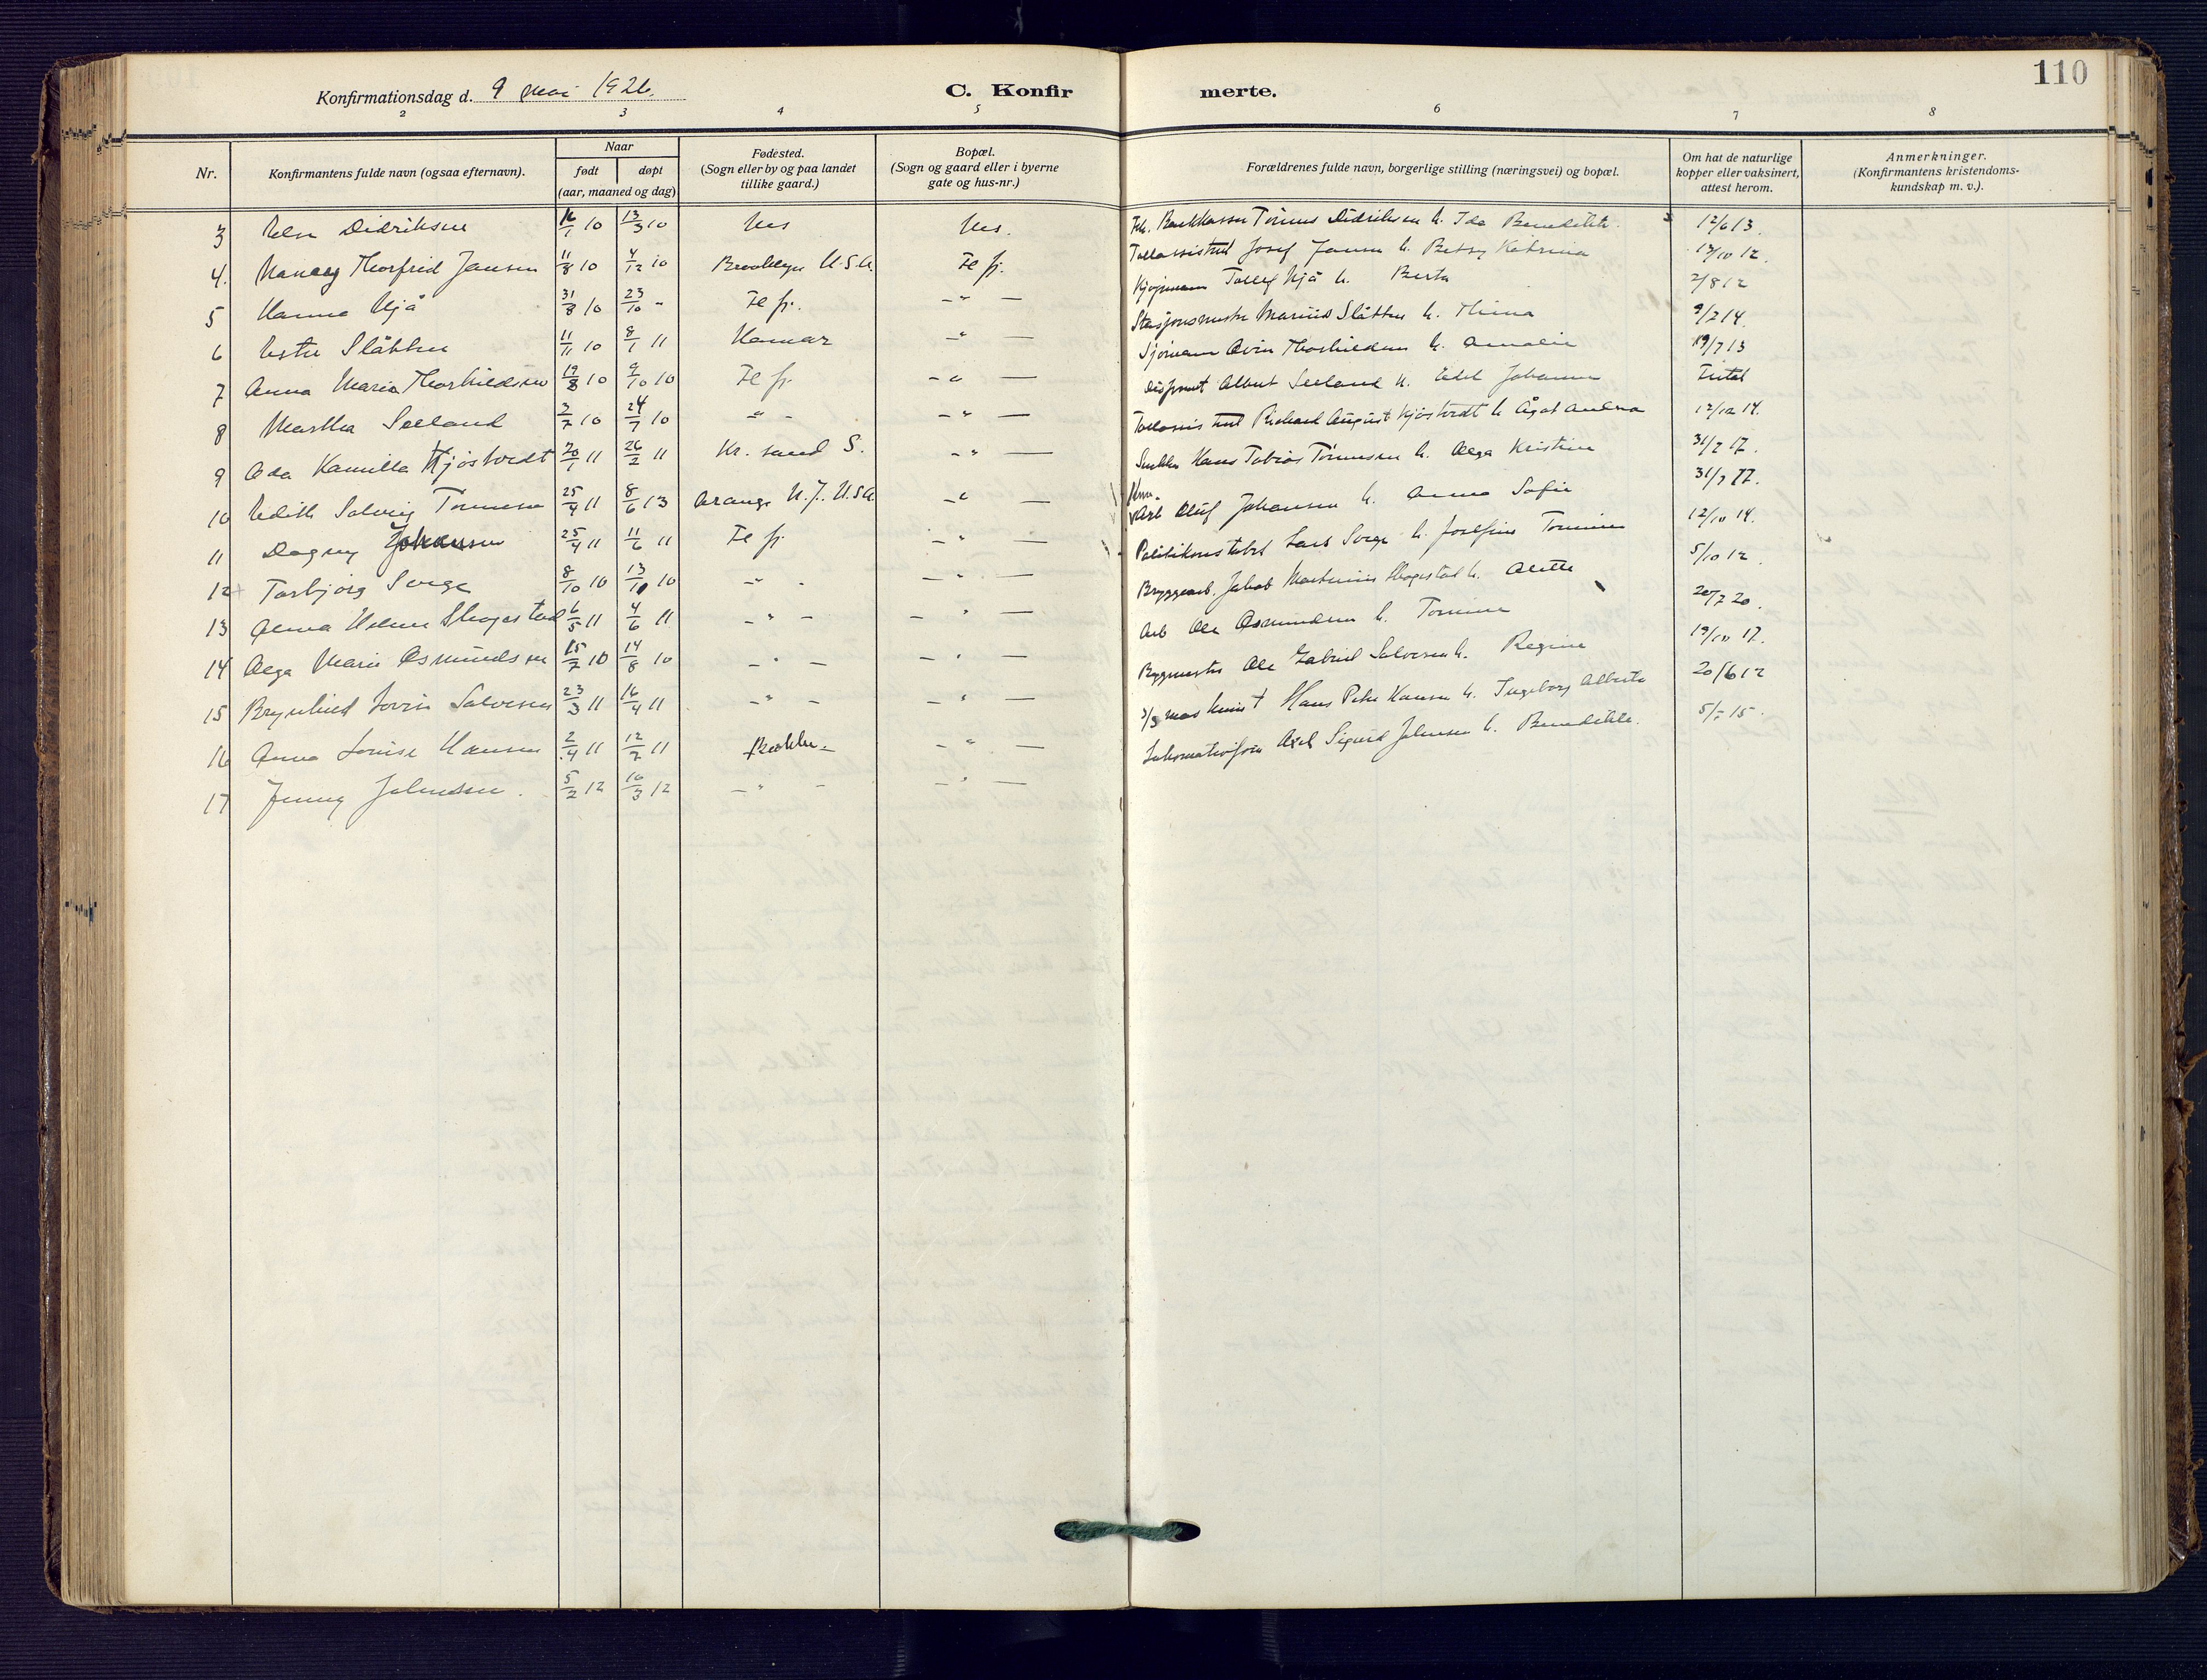 110
Konfirmationsdag d. 9 mai 1926.
C. Konfirmerte.
2 3 4 5 6 7 8
Nr.
Konfirmantens fulde navn (ogsaa efternavn).
Naar
født døpt
(aar, maaned og dag)
Fødested.
(Sogn eller by og paa landet
tillike gaard.)
Bopæl.
(Sogn og gaard eller i byerne
gate og hus-nr.)
Forældrenes fulde navn, borgerlige stilling (næringsvei) og bopæl.
Om hat de naturlige
kopper eller vaksinert,
attest herom.
Anmerkninger.
(Konfirmantens kristendoms-
kundskap m. v.).
3 Else Didriksen 16/1 10 13/3 10 Nes Nes. Bankkasser Tønnes Didriksen h. Ida Benedikte 12/6 13.
4. Nancey Thorfrid Jansen 11/8 10 4/12 10 Brooklyn U.S.A. Fl fj. Tollassistent Josef Jansen h. Betsy Katrina 12/10 12.
5 Hanna Njå 31/8 10 23/10 " Fl fj. - " - Kjøpmann Tollef Njå h. Berta 2/8 12
6 Ester Slåtten 11/11 10 8/1 11 Hamar - " - Stasjonsmester Marius Slåtten h. 9/2 14.
7 Anna Maria Thorkildsen 19/8 10 9/10 10 Fl fj. - " - Sjømann Thorkildsen h. Amalie 19/7 13
8 Martha Seeland 3/7 10 24/7 10 " - - " - Albert Seeland h. Edel Johanne
9 Oda Kamilla Kjøstvedt 20/1 11 26/2 11 Kr. sand S. - " - Tollassistent Richard August Kjøstvedt h 12/10 14.
10 Edith Solveig Tønnesen 25/4 11 8/6 13 Orange N.J. U.S.A. - " - Snekker Hans Tobias Tønnesen h. Olga Kristine 31/7 17.
11 Dagny Johansen 25/4 11 11/6 11 Fl fj - " - Arb Oluf Johansen h. Anna Sofie 31/7 17.
12 Torbjørg Sorge 8/10 10 13/11 10 - " - - " - Politikonstabel Lars Sorge h. Josefine Tomine 12/10 14.
13 Anna Helene Skogestad 6/5 11 4/6 11 - " - - " - Bryggearb. Jakob Martinius Skogestad h. Alette 5/10 12
14 Olga Marie Osmundsen 15/7 10 14/8 10 - " - - " - Arb Ole Osmundsen h. Tomine 20/7 20.
15 Brynhild Lovise Salvesen 23/3 11 16/4 11 - " - - " - Byggmester Ole Gabriel Salvesen h. Regine 19/10 17.
16 Anna Louise Hansen 2/4 11 12/7 11 - " - Hans Peter Hansen h. Ingeborg Alberta 20/6 12
17 Jenny Johnsen. 5/2 12 10/3 12 - " - - " - Axel Sigurd Johnsen h. Benedikte. 5/5 15.